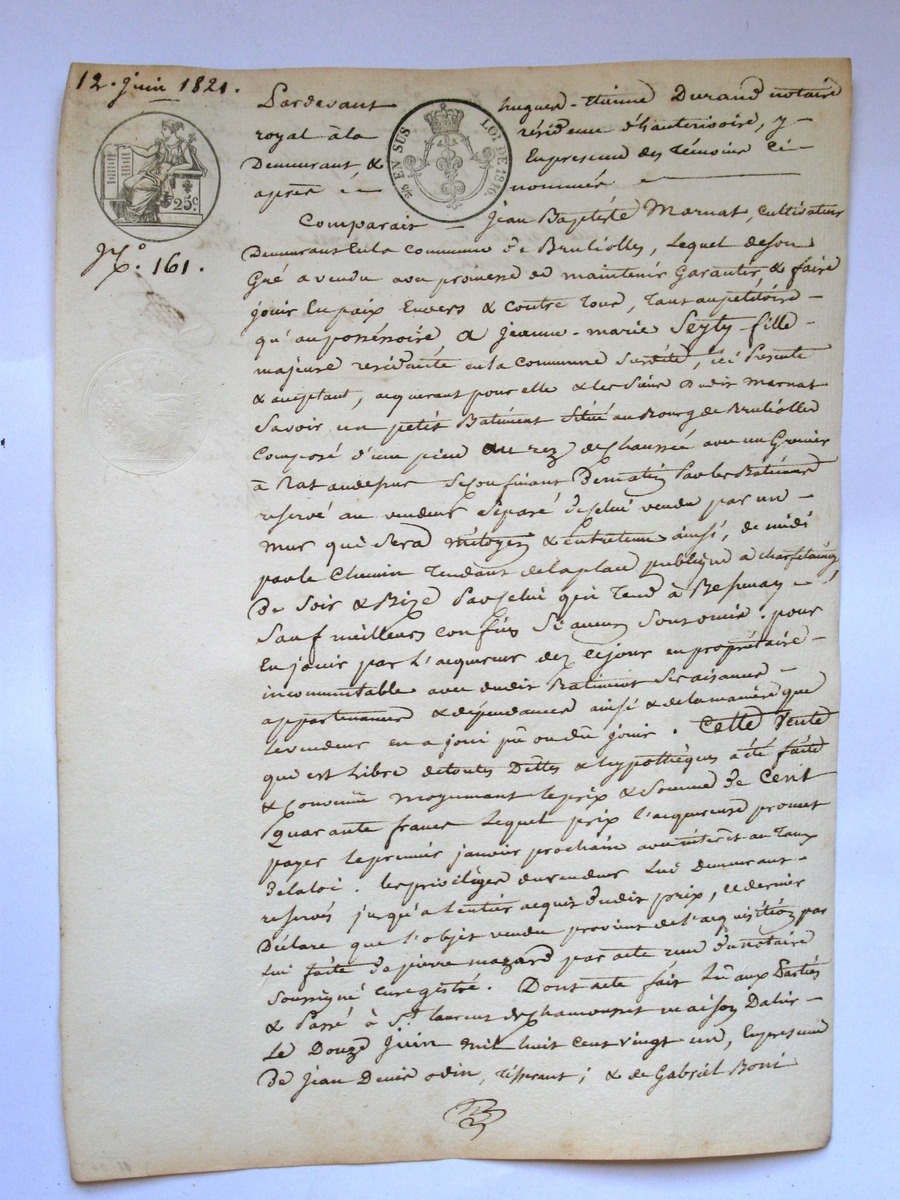 12. juin 1821.
Pardevant hugues-Etienne Durand notaire
royal à la résidence d'hauterivoire, y
Demeurant, & En presence des témoins Ci-
après nommés
25 EN SUS LOI DE 1816.
25c
N.o 161.
Comparait Jean Baptiste Marnat, Cultivateur
Demeurant En la Commune de Brulliolles, Lequel de son
Gré a vendu avec promesse de maintenir Garantir, & faire
jouir En paix Envers & Contre Tous, Tant au petitoire
qu'au possessoire, a jeanne-marie Seyty fille
majeure résidante en la Commune Susdite, ici Presente
& acceptant, acquerant pour elle & les Siens Dudit Marnat
Savoir un petit Batiment Situé au Bourg de Brulliolles
Composé d'une piece au rez de Chaussée avec un Grenier
à Rat au dessus Se Confinant De matin Par les Batimens
reservé au vendeur séparé de celui vendu par un
Mur qui Sera mitoyen & Entretenu ainsi, de midi
par le Chemin Tendant de la place publique a
De Soir & Bize Par celui qui Tend à Bessenay
Sauf meilleurs Confins Si aucuns Sont omis. pour
En jouir par L'acquereur dez ce jour en propriétaire
incommutable avec dudit Batiment Ses aisances
appartenances & dépendances ainsi & de la manière que
Le vendeur en a joui pû ou dû jouir. Cette Vente
que est Libre de toutes Dettes & hypothèques a été faite
& Convenue moyennant le prix & Somme de Cent
Quarante francs Lequel prix l'acquereuse promet
payer le premier janvier prochain avec intérêt au Taux
de la loi. les privilèges du vendeur Lui Demeurant
reservés jusqu'a l'entier acquis dudit prix, ce dernier
Déclare que l'objet vendu provient de l'acquisition par
Lui faite de pierre mazard par acte reçu du notaire
Soussigné Enregistré. Dont acte fait Lû aux Parties
& Passé à St. Laurent de Chamousset maison
Le Douze Juin mil huit Cent vingt un, En presence
De Jean Denis odin, Tisserant; & de Gabriel Boni